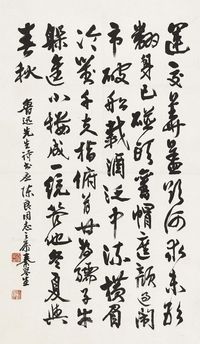 運交華蓋欲何求未敢
翻身已碰頭舊帽遮顏過鬧
市破船載酒泛中流橫眉
冷對千夫指俯首甘為孺子牛
躲進小樓成一統管他冬夏與
春秋
魯迅先生詩書應陳良同志之屬秦咢生